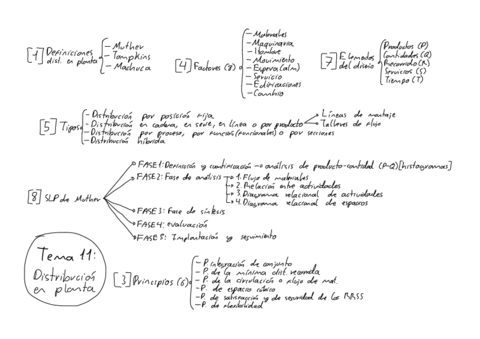 [1] Definiciones dist. en planta
- Muther
- Tompkins
- Machuca
[4] Factores (8)
- Materiales
- Maquinaria
- Hombre
- Movimiento
- Espera (alm)
- Servicio
- Edificaciones
- Cambio
[7] Elementos del diseño
Productos (P)
Cantidades (Q)
Recorrido (R)
Servicios (S)
Tiempo (T)
[5] Tipos
- Distribución por posición fija
- Distribución en cadena, en serie, en línea o por producto
Líneas de montaje
Talleres de flujo
- Distribución por proceso, por funcion (funcionales) o por secciones
- Distribución híbrida
[8] SLP de Muther
FASE 1: Definición y cuantificación → análisis de producto-cantidad (P-Q) [histogramas]
FASE 2: Fase de análisis
1. Flujo de materiales
2. Relación entre actividades
3. Diagrama relacional de actividades
4. Diagrama relacional de espacios
FASE 3: Fase de síntesis
FASE 4: evaluación
FASE 5: Implantación y seguimiento
Tema 11:
Distribución
en planta
[3] Principios (6)
- P. integración de conjunto
- P. de la mínima dist. recorrida
- P. de la circulación o flujo de mat.
- P. de espacio cúbico
- P. de satisfacción y de seguridad de los RRSS
- P. de flexibilidad